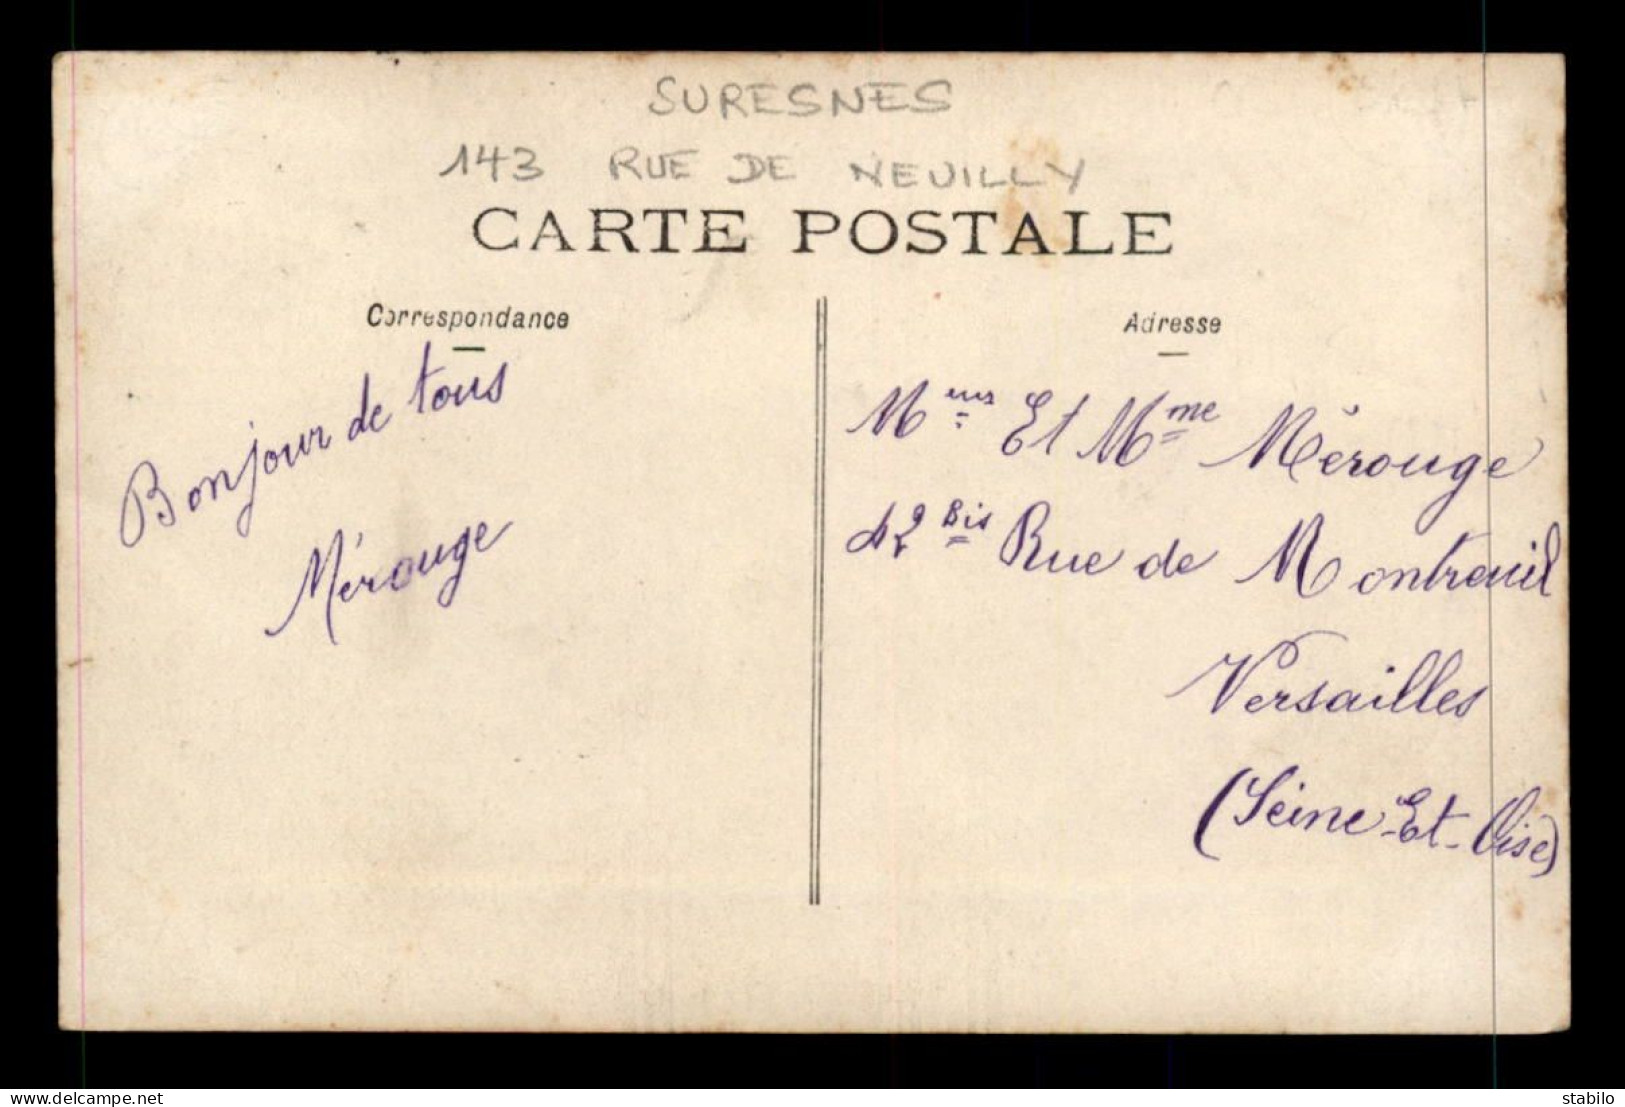 SURESNES
143 RUE DE NEUILLY
CARTE POSTALE
Correspondance
Bonjour de tous
Mérouge
Adresse
Et Mme Mérouge
42 Bis Rue de Montreuil
Versailles
(Seine-Et-Oise)
www.delcampe.net
stabilo